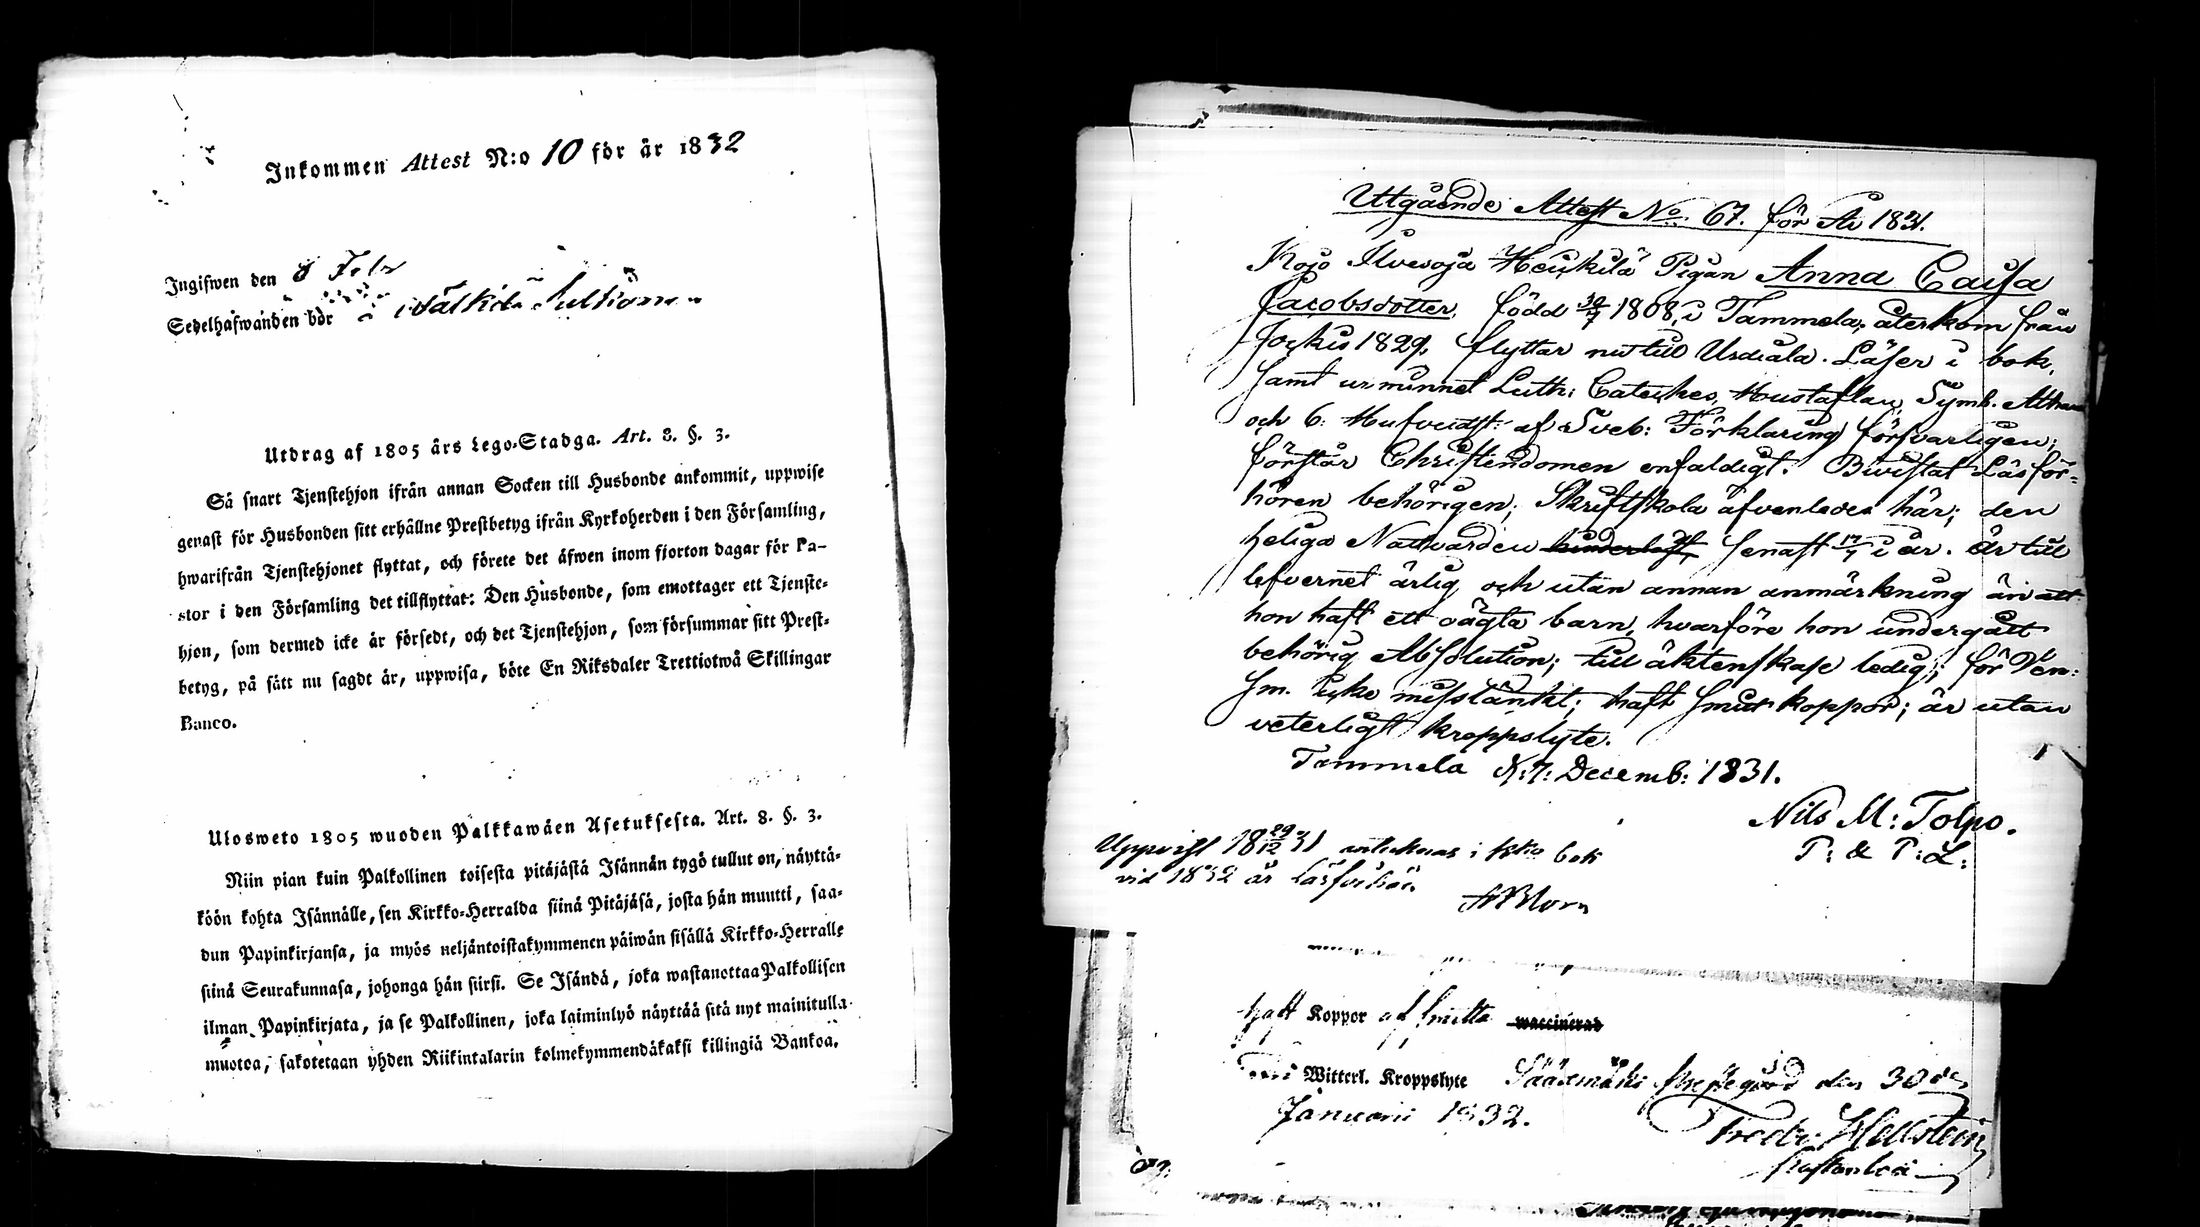 Inkommen Attest N:o 10 för år 1832
Ingifwen den 8 Febr
Sedelhafwanden bör
Utdrag af 1805 års Lego-Stadga. Art. 8. §. 3.
Så snart Tjenstehjon ifrån annan Socken till Husbonde ankommit, uppwise
genast för Husbonden sitt erhållne Prestbetyg ifrån Kyrkoherden i den Församling,
hwarifrån Tjenstehjonet flyttat, och förete det äfwen inom fjorton dagar för Pa-
stor i den Församling det tillflyttat: Den Husbonde, som emottager ett Tjenste-
hjon, som dermed icke är försedt, och det Tjenstehjon, som försummar sitt Prest-
betyg, på sätt nu sagdt är, uppwisa, böte En Riksdaler Trettiotwå Skillingar
Banco.
Ulosweto 1805 wuoden Palkkawäen Asetuksesta. Art. 8. §. 3.
Niin pian kuin Palkollinen toisesta pitäjästä Isännän tygö tullut on, näyttä-
köön kohta Isännälle, sen Kirkko-Herralda siinä Pitäjäsä, josta hän muutti, saa-
dun Papinkirjansa, ja myös neljäntoistakymmenen päiwän sisällä Kirkko-Herralle
siinä Seurakunnasa, johonga hän siirsi. Se Isändä, joka wastanottaa Palkollisen
ilman Papinkirjata, ja se Palkollinen, joka laiminlyö näyttää sitä nyt mainitulla
muotoa, sakotetaan yhden Riikintalarin kolmekymmendäkaksi killingiä Bankoa.
Utgående Attest No. 67. för År 1831.
Kojo Ilvesoja Heikkilä Pigan Anna Caisa
Jacobsdotter, född 30/7 1808, i Tammela, återkom från
Jockis 1829, flyttar nu till Urdiala. Läser i bok,
samt ur minnet Luth: Cateches, Hustaflan, Symb. Athan
och 6. Hufvudst: af Sveb: Förklaring försvarligen;
förstår Christendomen enfaldigt. Bivistat Läsför-
hören behörigen; Skriftskola äfvenledes här; den
heliga Nattvarden senast 17/7 i år. är till
lefvernet ärlig och utan annan anmärkning än att
hon haft ett oägta barn, hvarföre hon undergått
behörig Absolution; till äktenskap ledig; för Ven:
sm. icke misstänkt; haft smitkoppor; är utan
veterligt kroppslyte.
Tammela d. 7: Decemb: 1831.
Nils M: Tolpo.
P: & P: L:
Uppvist 18 29/12 31 antecknas i kko bok
vid 1832 år läsförhör.
haft Koppor af smitta waccinerad
Witterl. Kroppslyte Sääxmäki prestegård den 30de
Januarii 1832.
Fredr. Hellstein